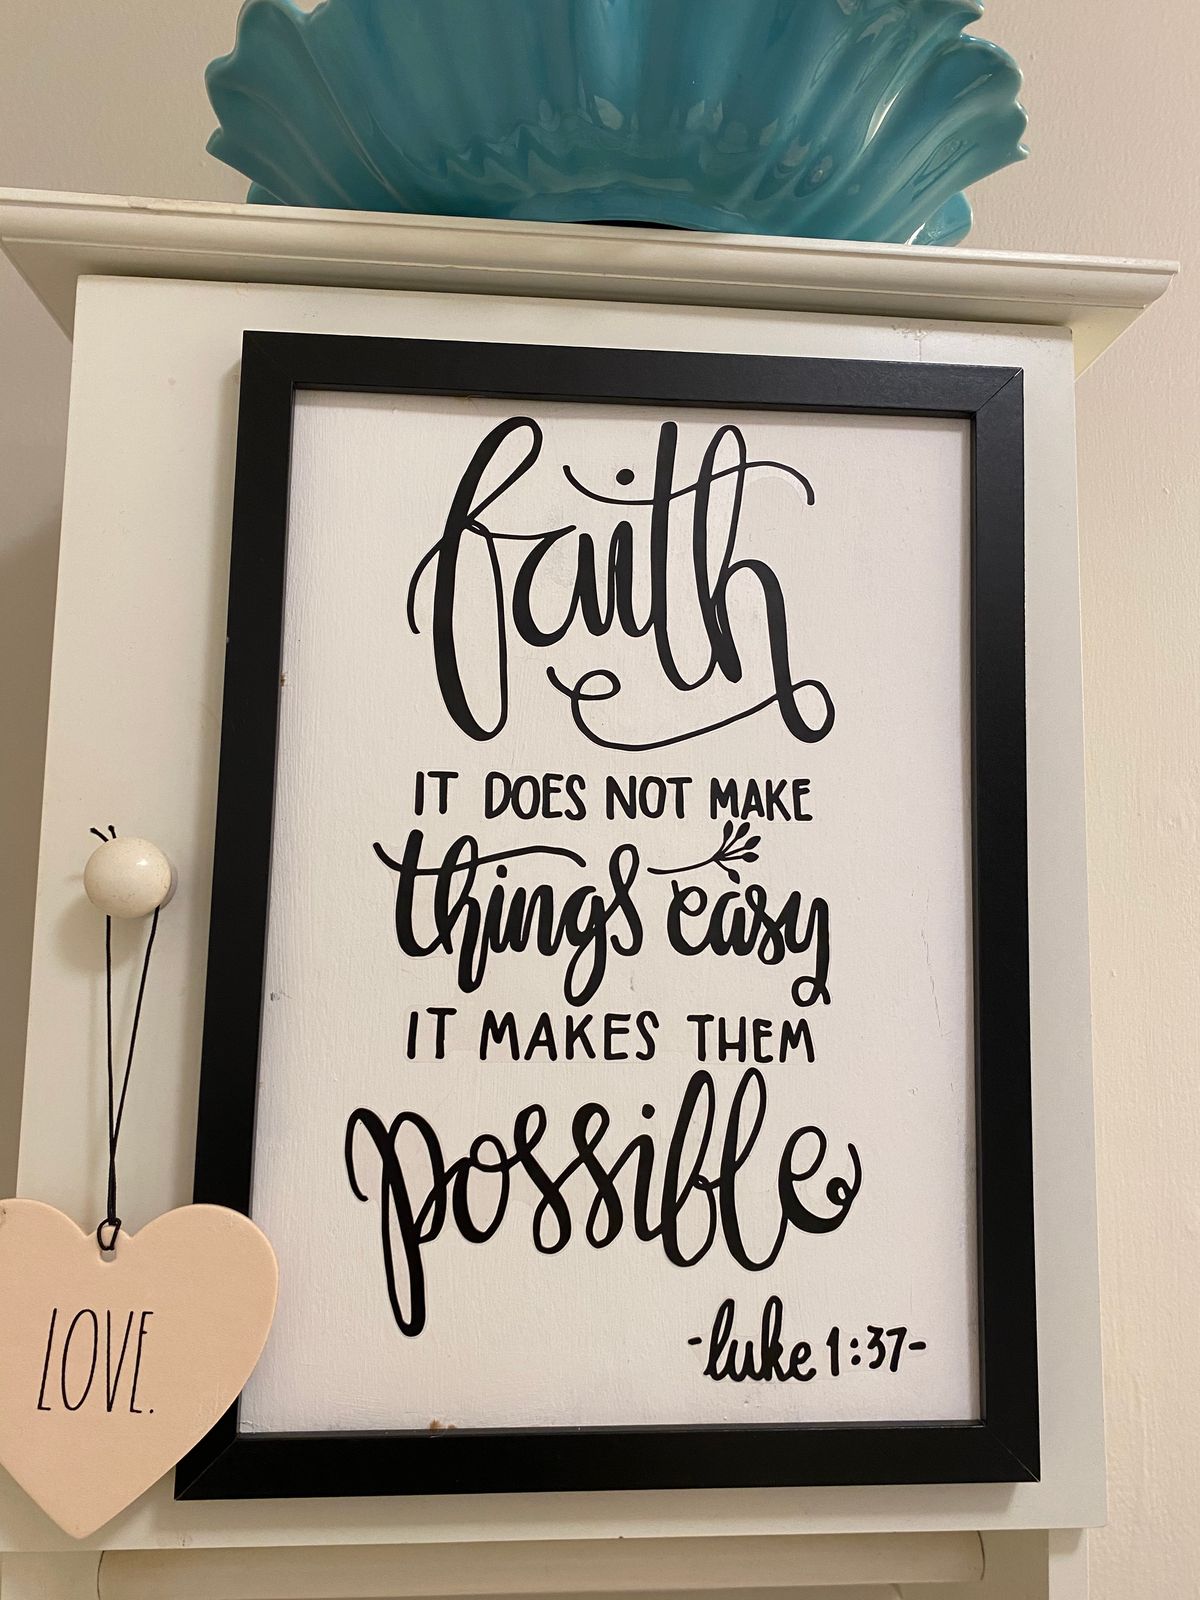 faith
IT DOES NOT MAKE
things easy
IT MAKES THEM
possible
-luke 1:37-
LOVE.